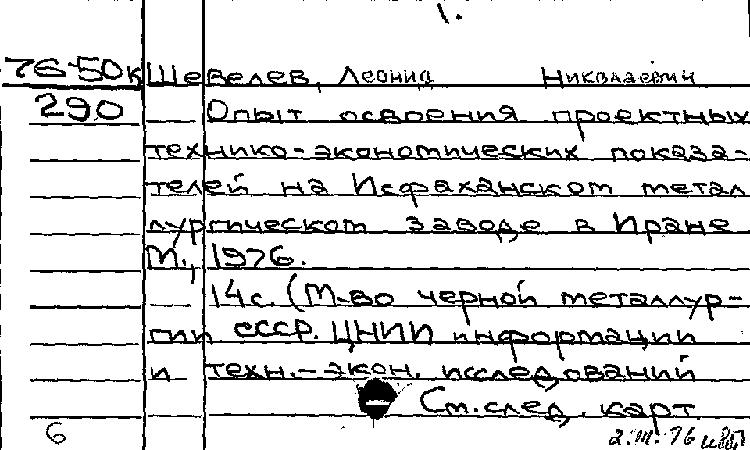 1.
76-50к Шевелев, Леонид Николаевич
290 Опыт освоения проектных
технико-экономических показа-
телей на Исфаханском метал
лургическом заводе в Иране
М., 1976.
14с. (М-во черной металлур-
гии СССР. ЦНИИ информации
и техн.-экон. исследований
См. след. карт
6 2.III.76